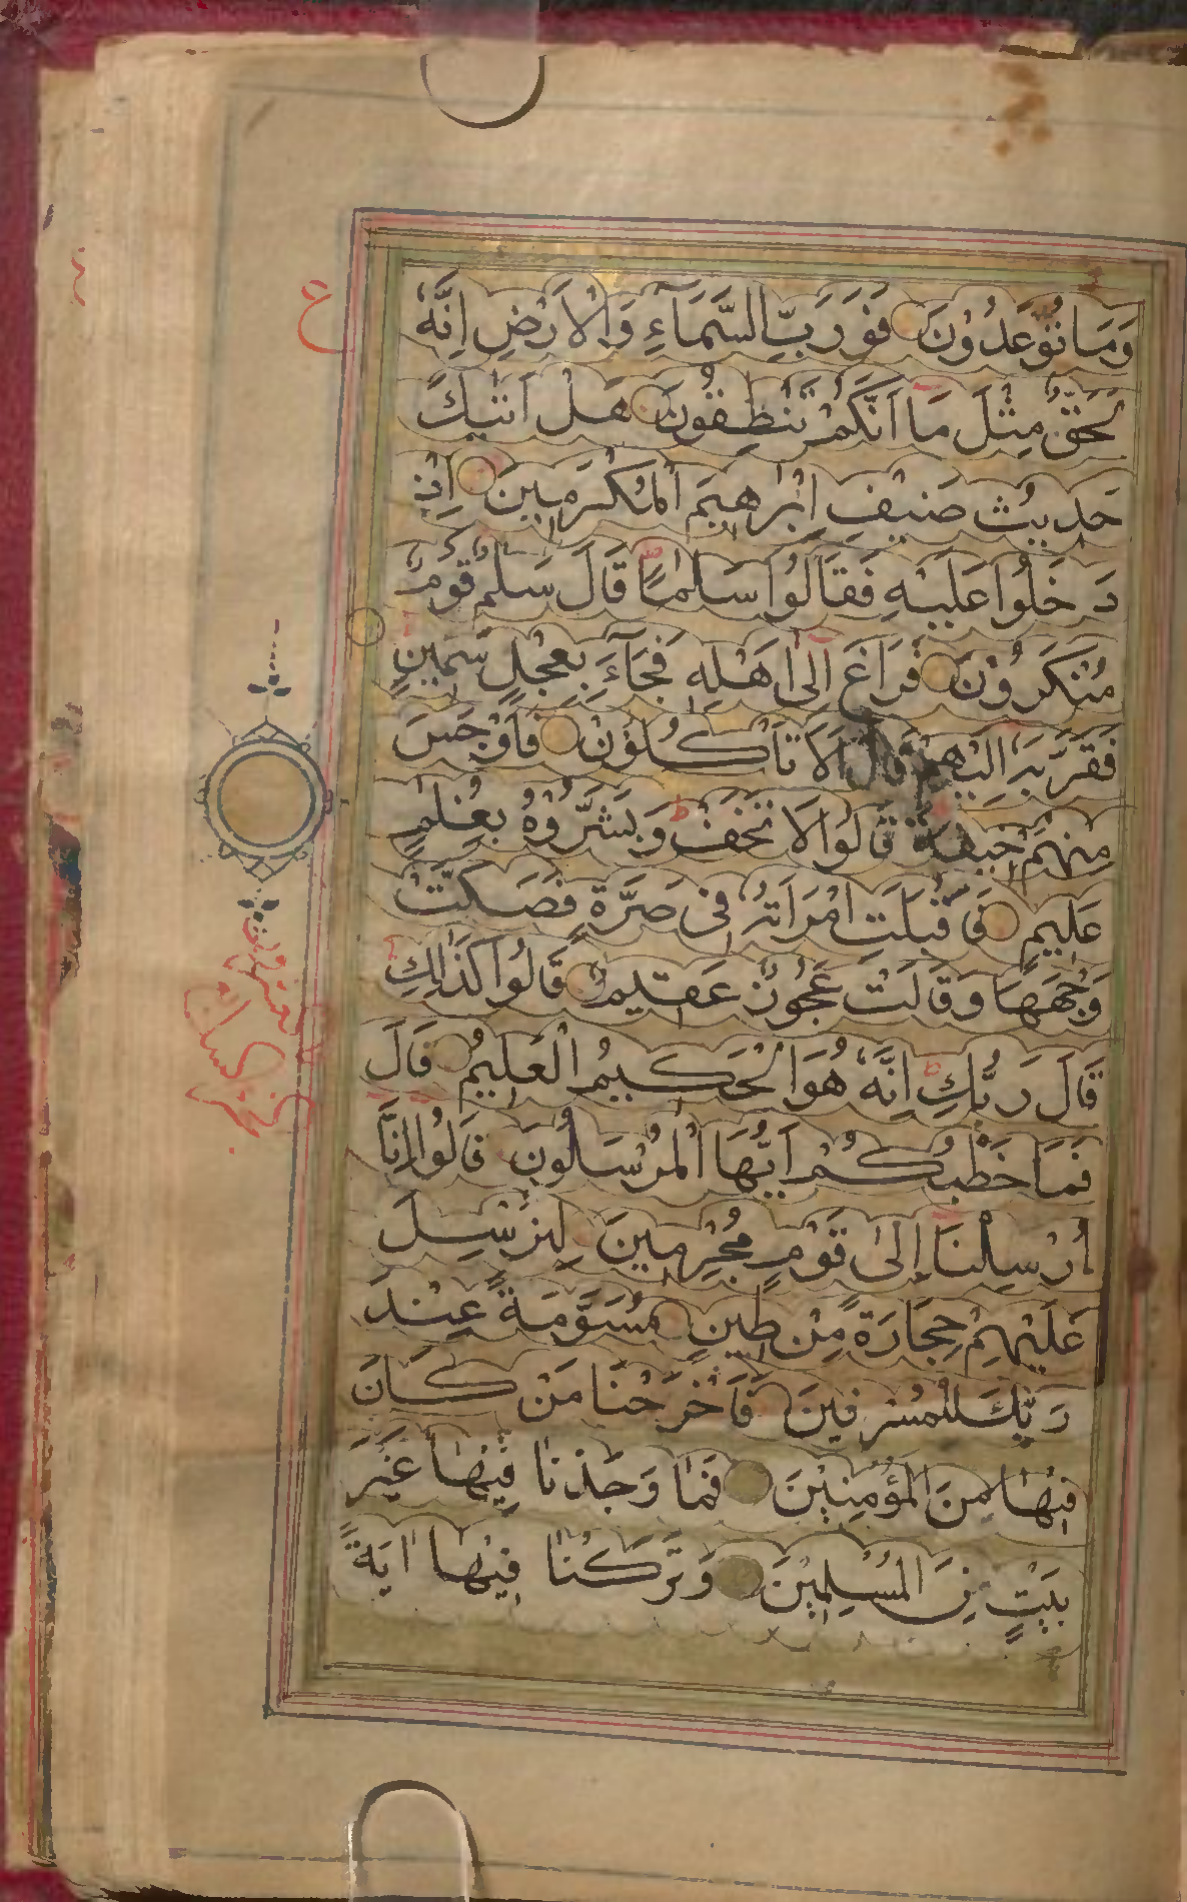 وَمَا تُوْعَدُوْنَ فَوَرَبِّ السَّمَآءِ وَالْاَرْضِ اِنَّهٗ
لَحَقٌّ مِثْلَ مَا اَنَّكُمْ تَنْطِقُوْنَ هَلْ اَتٰيكَ
حَدِيْثُ ضَيْفِ اِبْرٰهِيْمَ الْمُكْرَمِيْنَ اِذْ
دَخَلُوْا عَلَيْهِ فَقَالُوْا سَلٰمًا قَالَ سَلٰمٌ قَوْمٌ
مُنْكَرُوْنَ فَرَاغَ اِلٰى اَهْلِهٖ فَجَآءَ بِعِجْلٍ سَمِيْنٍ
فَقَرَّبَهٗ اِلَيْهِمْ قَالَ اَلَا تَأْكُلُوْنَ فَاَوْجَسَ
مِنْهُمْ خِيْفَةً قَالُوْا لَا تَخَفْ وَبَشَّرُوْهُ بِغُلٰمٍ
عَلِيْمٍ فَاَقْبَلَتِ امْرَاَتُهٗ فِى صَرَّةٍ فَصَكَّتْ
وَجْهَهَا وَقَالَتْ عَجُوْزٌ عَقِيْمٌ قَالُوْا كَذٰلِكِ
قَالَ رَبُّكِ اِنَّهٗ هُوَ الْحَكِيْمُ الْعَلِيْمُ قَالَ
فَمَا خَطْبُكُمْ اَيُّهَا الْمُرْسَلُوْنَ قَالُوْا اِنَّا
اُرْسِلْنَا اِلٰى قَوْمٍ مُجْرِمِيْنَ لِنُرْسِلَ
عَلَيْهِمْ حِجَارَةً مِنْ طِيْنٍ مُسَوَّمَةً عِنْدَ
رَبِّكَ لِلْمُسْرِفِيْنَ فَاَخْرَجْنَا مَنْ كَانَ
فِيْهَا مِنَ الْمُؤْمِنِيْنَ فَمَا وَجَدْنَا فِيْهَا غَيْرَ
بَيْتٍ مِنَ الْمُسْلِمِيْنَ وَتَرَكْنَا فِيْهَا اٰيَةً